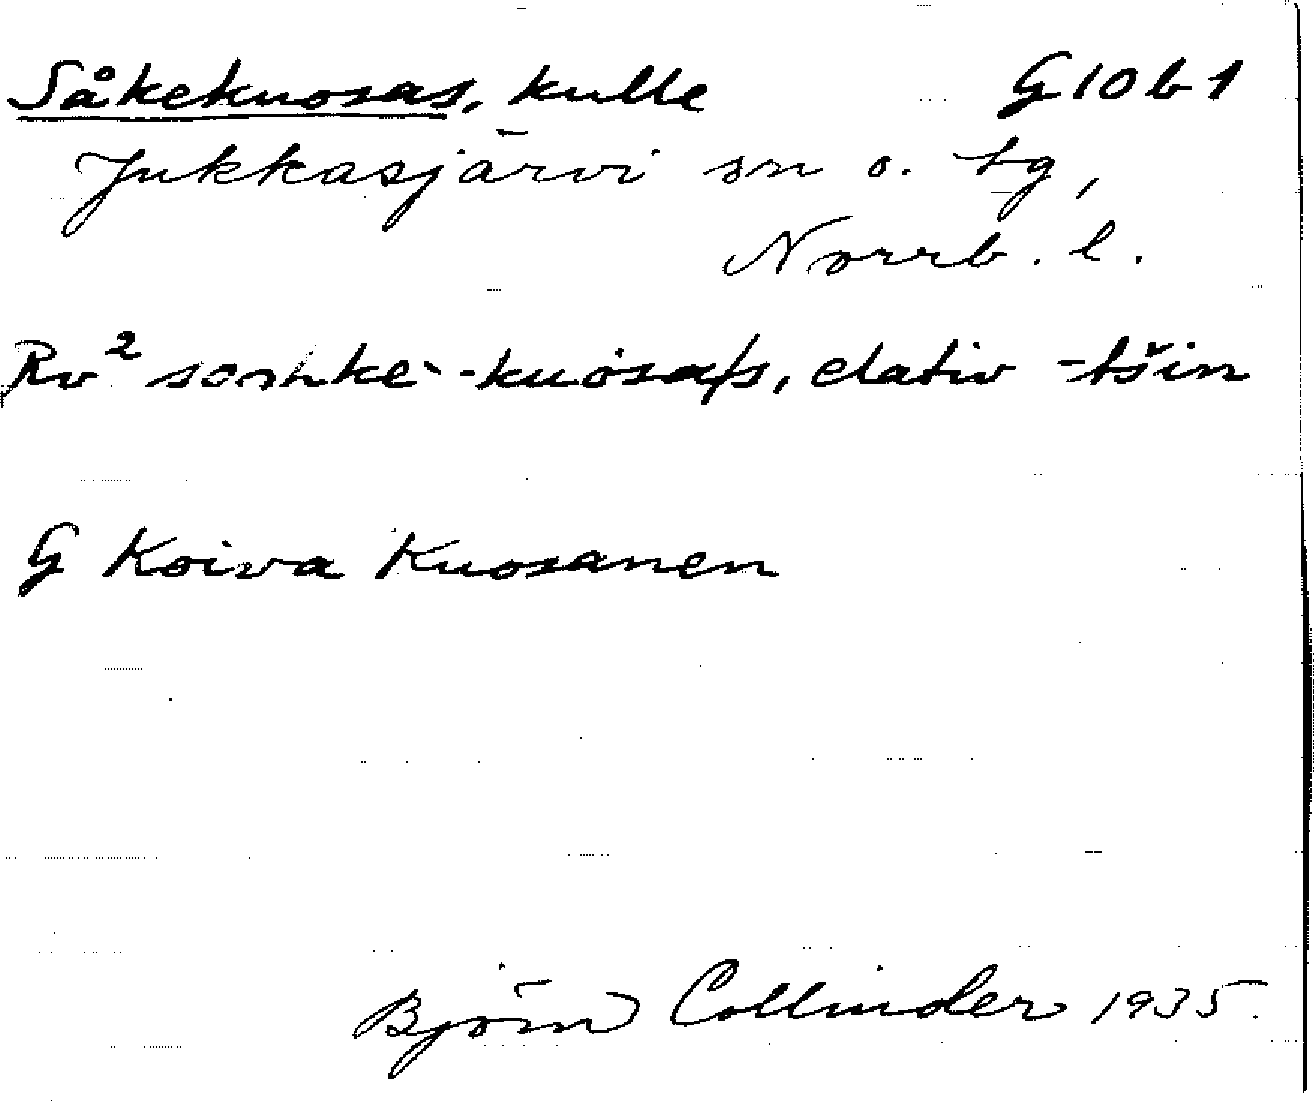 Såkekuosas, kulle G 10 b 1
Jukkasjärvi sn o. tg,
Norrb. l.
Rv² -kuosa/s, elativ -tšin
G Koiva Kuosanen
Björn Collinder 1935.